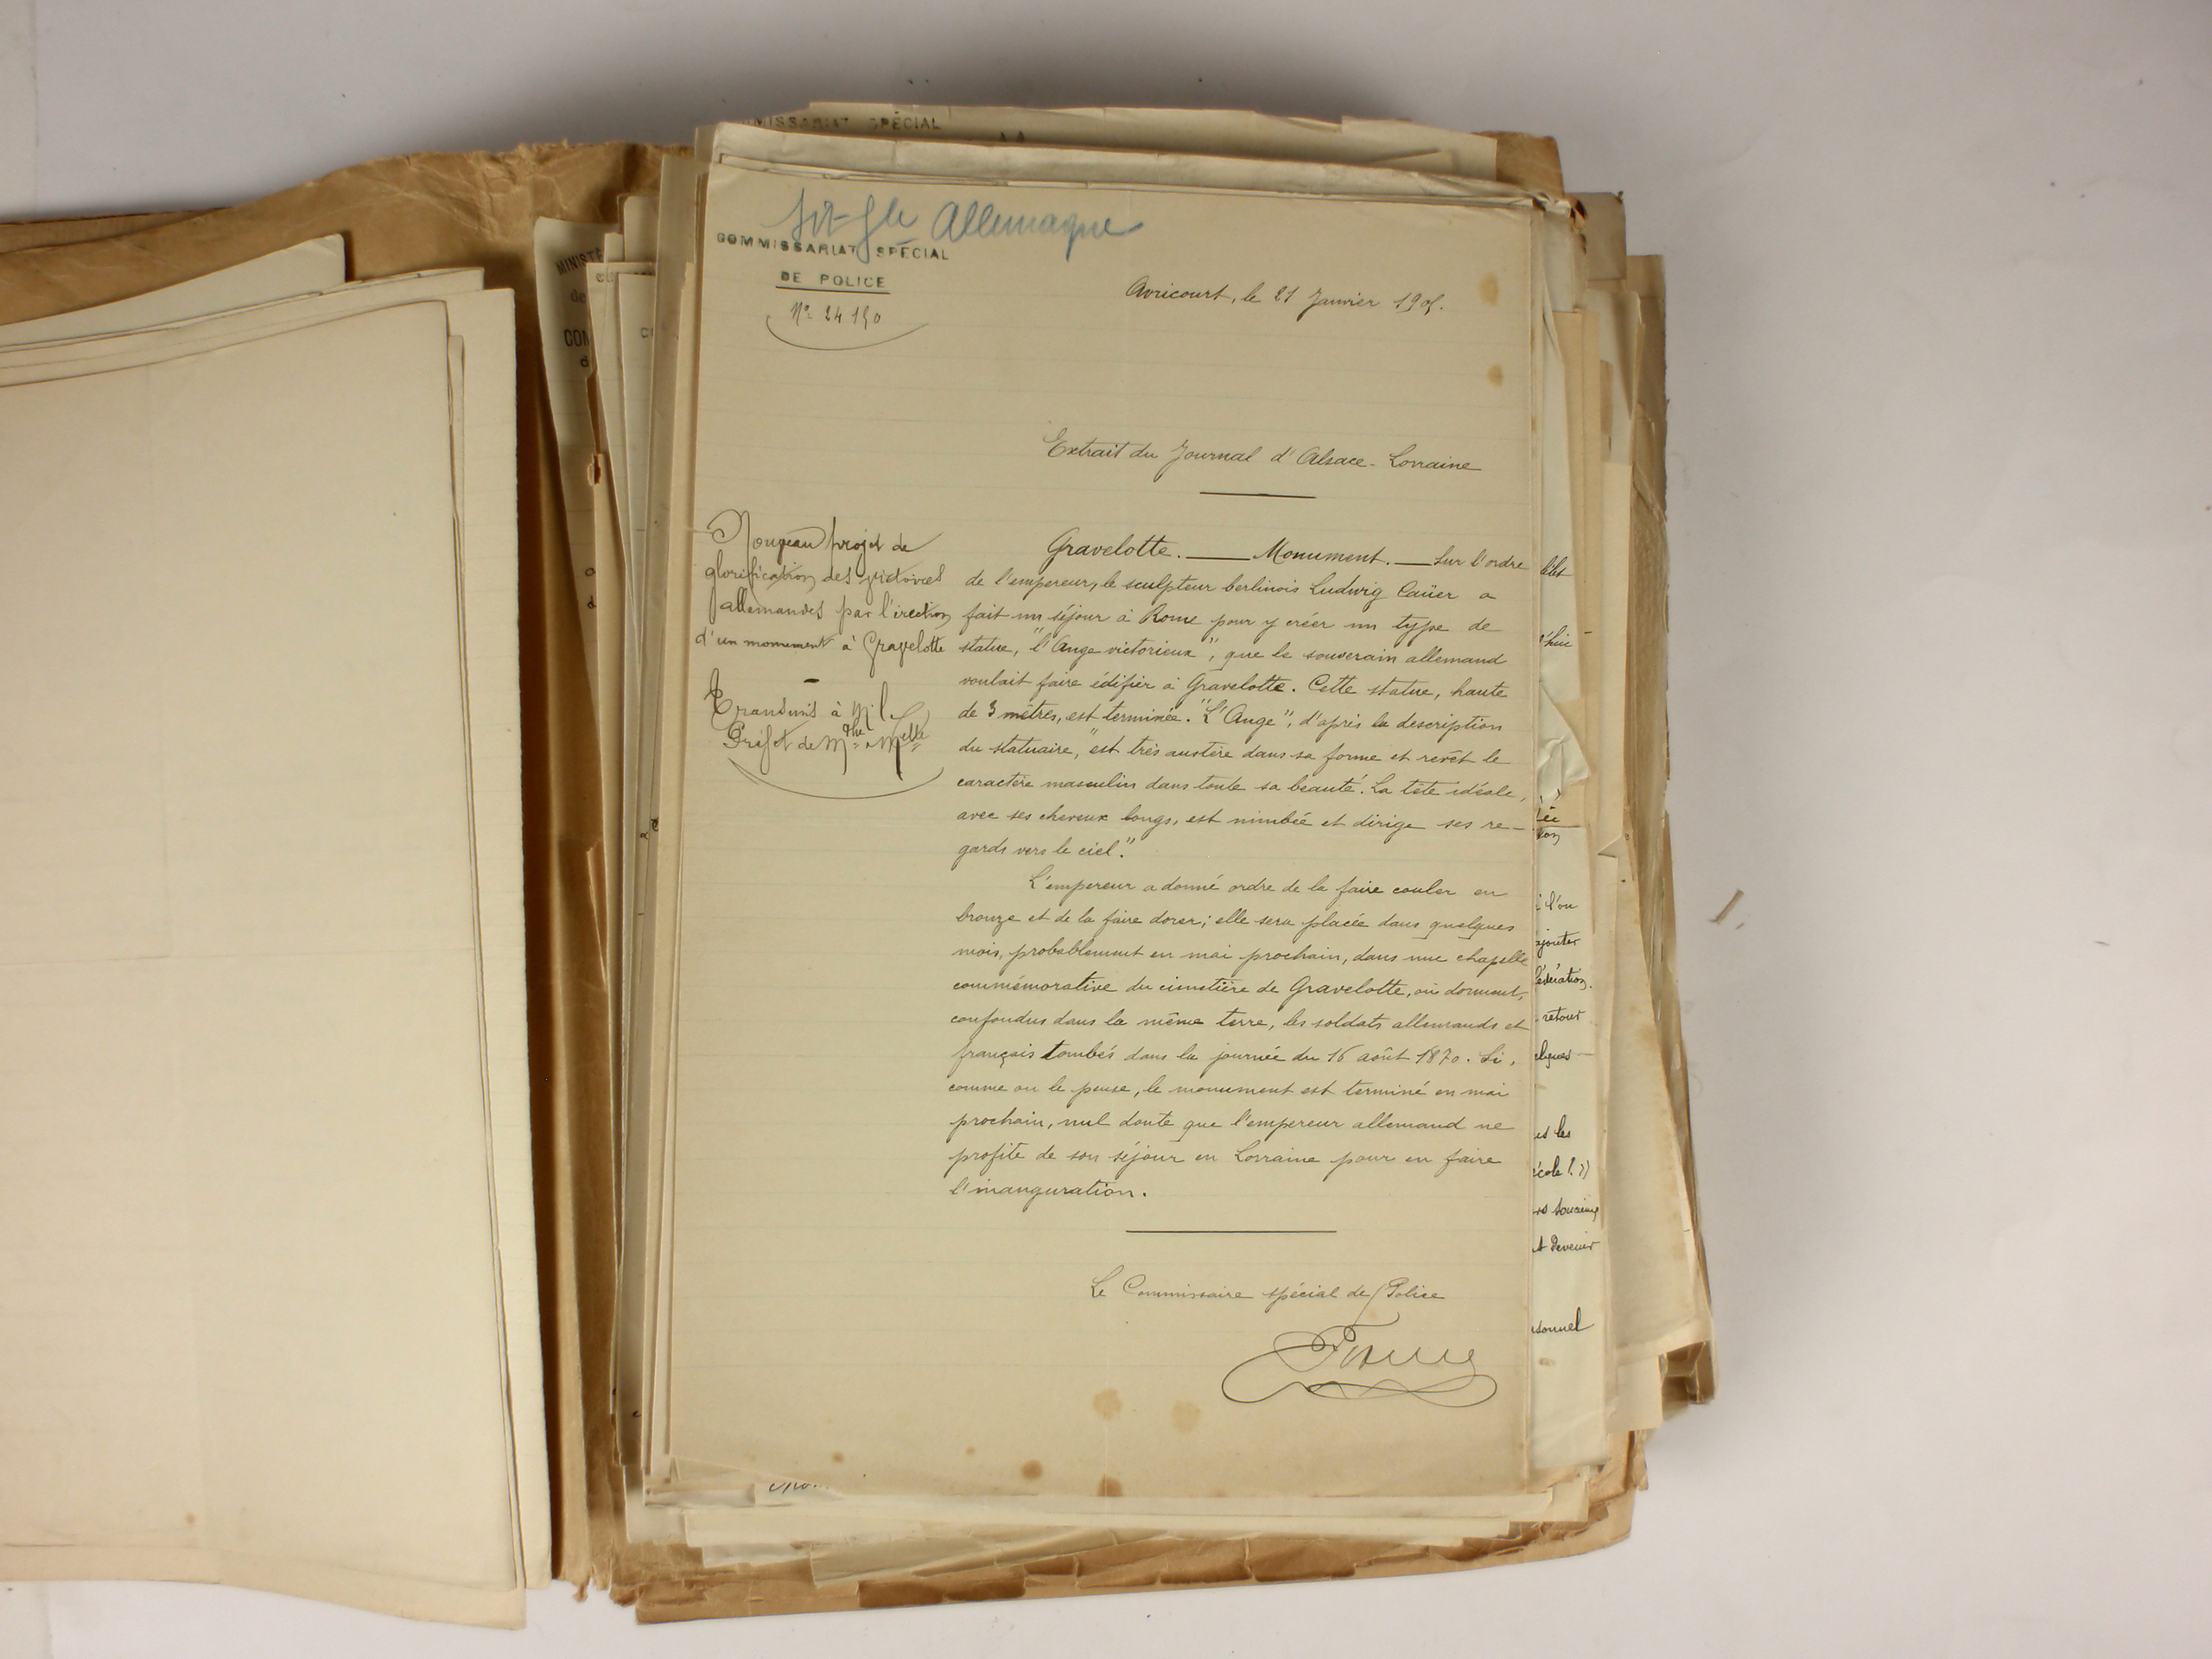 MISSARIAT SPÉCIAL
Sit Gle Allemagne
COMMISSARIAT SPÉCIAL
DE POLICE
No 24150
Avricourt, le 21 Janvier 1905.
Extrait du Journal d'Alsace-Lorraine
Nouveau projet de
glorification des victoires
allemandes par l'érection
d'un monument à Gravelotte
Transmis à M. le
Préfet de Mthe & Mlle
Gravelotte. — Monument. — Sur l'ordre
de l'empereur, le sculpteur berlinois Ludwig Caüer a
fait un séjour à Rome pour y créer un type de
statue, "l'Ange victorieux", que le souverain allemand
voulait faire édifier à Gravelotte. Cette statue, haute
de 3 mètres, est terminée. "L'Ange", d'après la description
du statuaire, "est très austère dans sa forme et revêt le
caractère masculin dans toute sa beauté. La tête idéale,
avec ses cheveux longs, est nimbée et dirige ses re-
gards vers le ciel."
L'empereur a donné ordre de la faire couler en
bronze et de la faire dorer; elle sera placée dans quelques
mois, probablement en mai prochain, dans une chapelle
commémorative du cimetière de Gravelotte, où dorment,
confondus dans la même terre, les soldats allemands et
français tombés dans la journée du 16 août 1870. Si,
comme on le pense, le monument est terminé en mai
prochain, nul doute que l'empereur allemand ne
profite de son séjour en Lorraine pour en faire
l'inauguration.
Le Commissaire spécial de Police
MINISTÈ
de
CON
l'on
ajouter
retour
es les
école !.))
devenir
sonnel